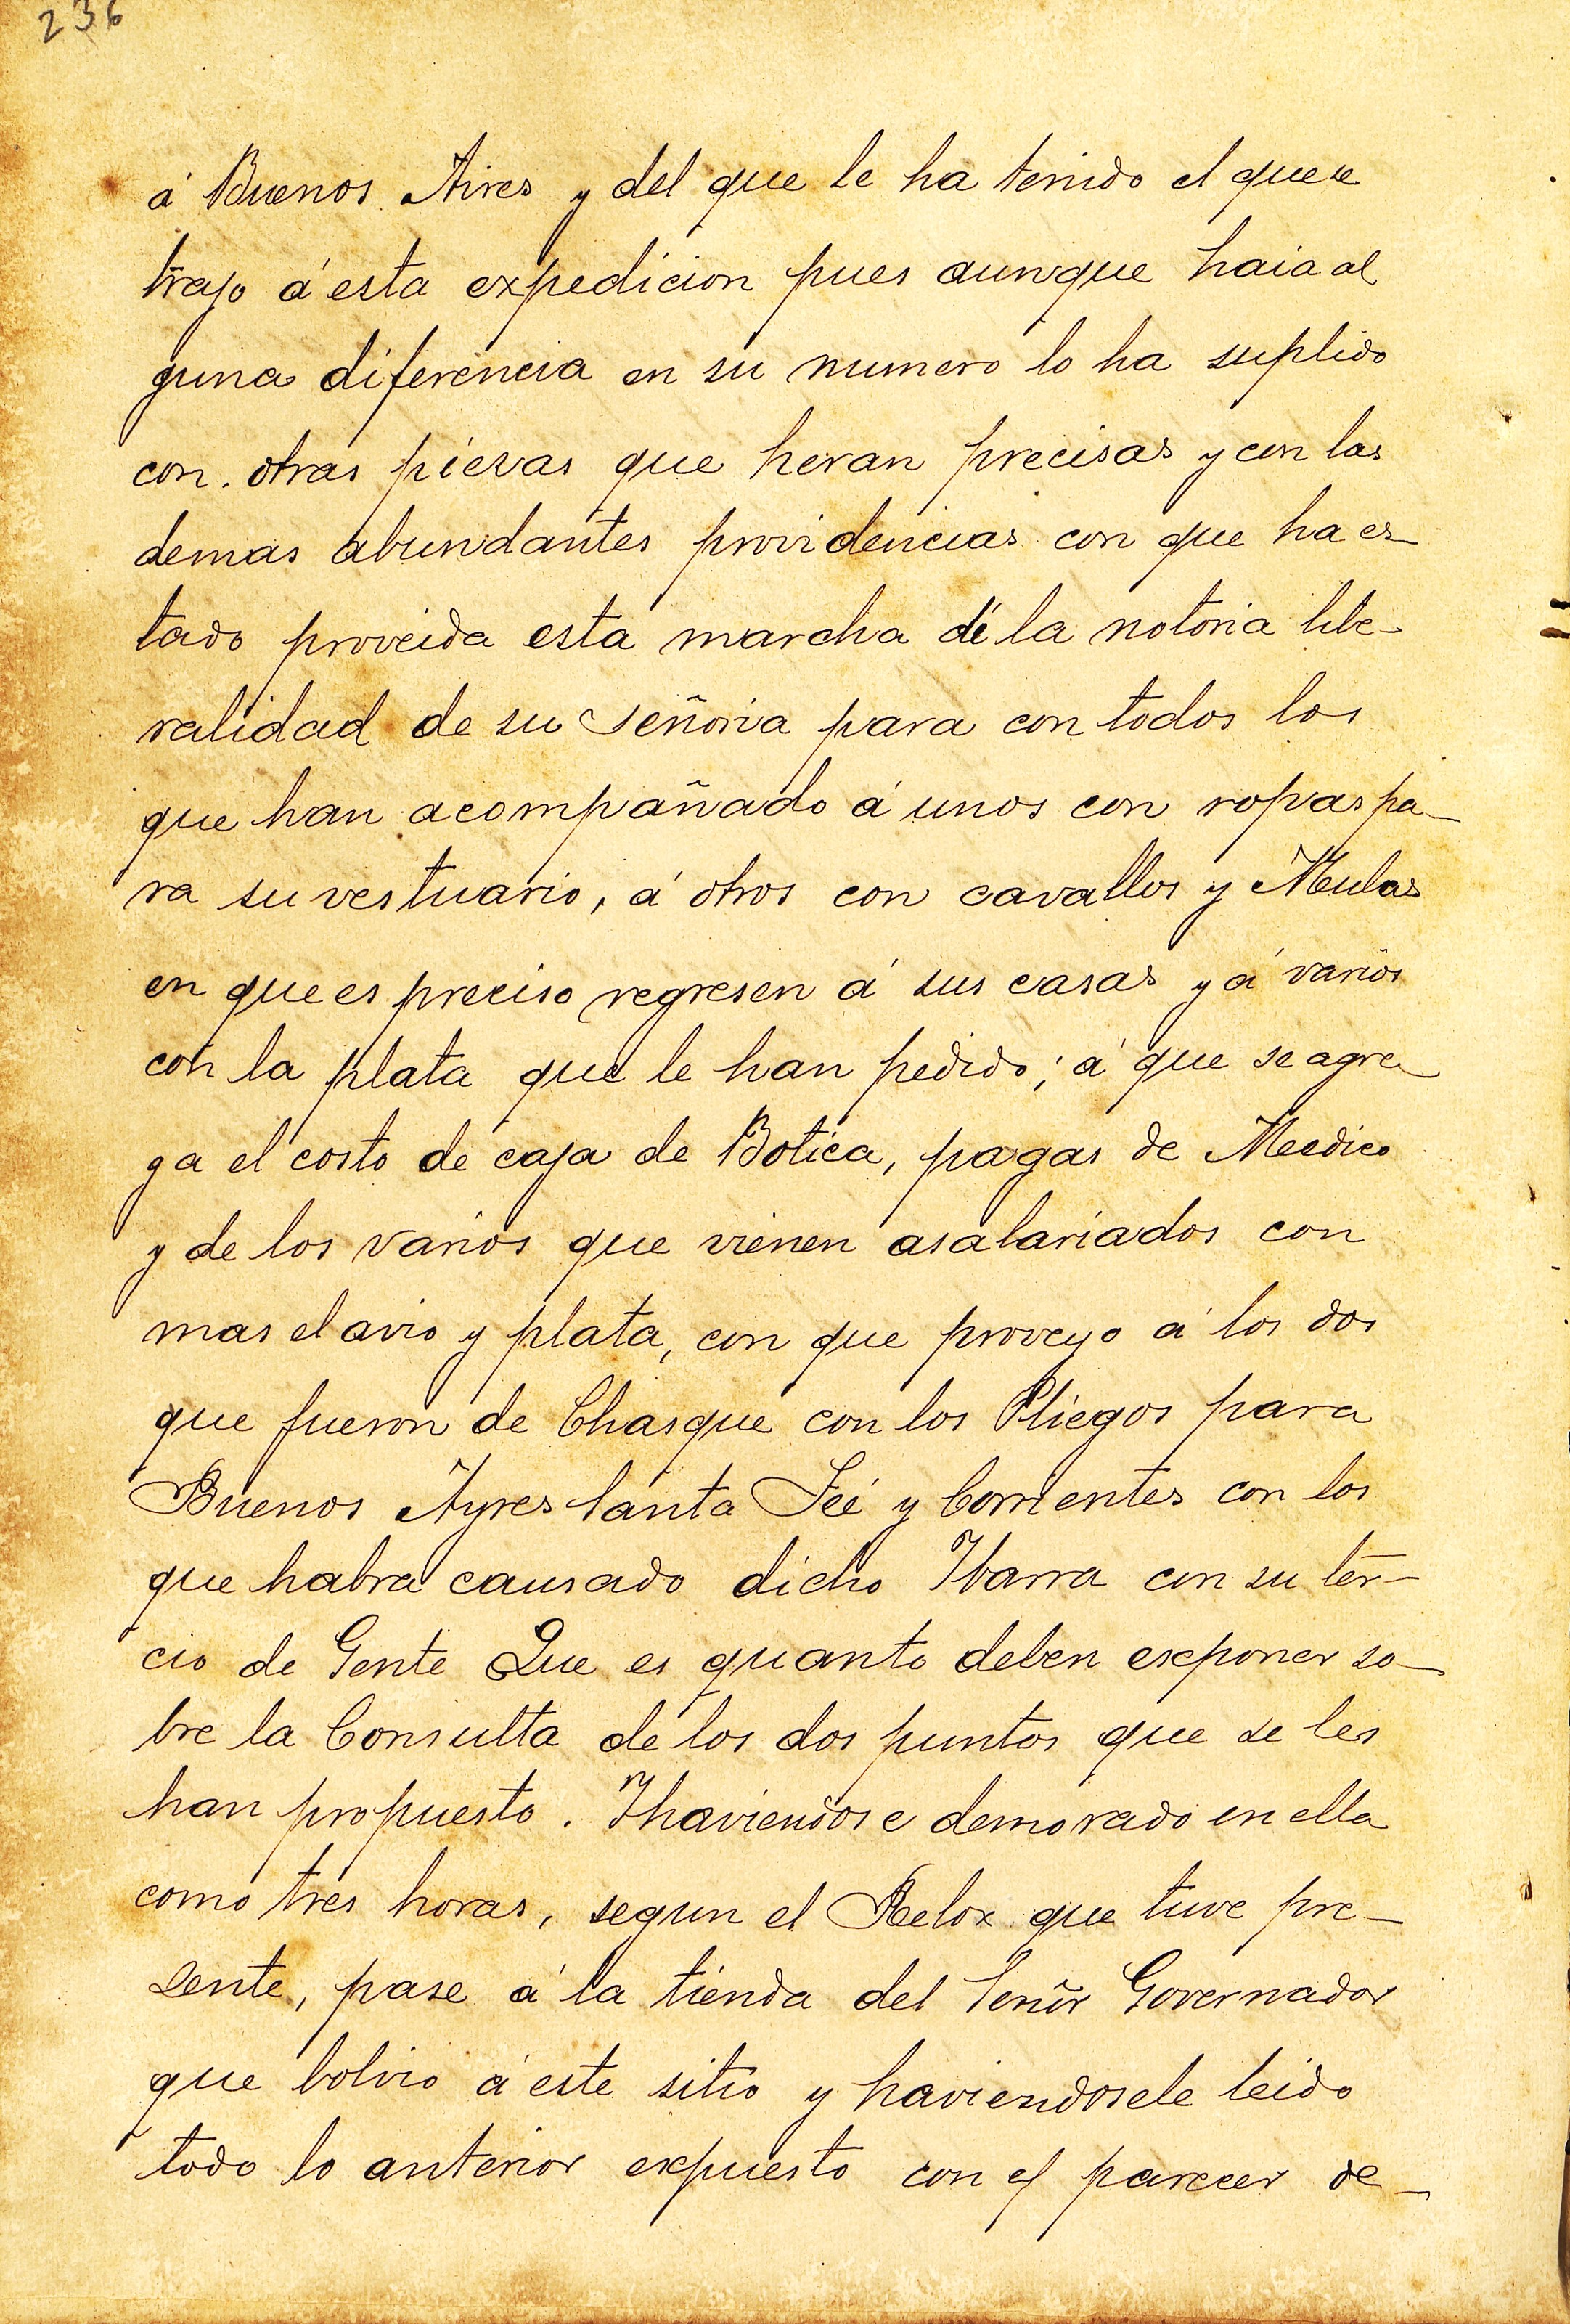 236
á Buenos Aires y del que le ha tenido el que se
trajo á esta expedicion pues aunque haia al
guna diferencia en su numero lo ha suplido
con. otras piezas que heran precisas y con las
demas abundantes providencias con que ha es-
tado proveida esta marcha de la notoria libe-
ralidad de su señoria para con todos los
que han acompañado á unos con ropas pa-
ra su vestuario, á otros con cavallos y Mulas
en que es preciso regresen á sus casas y á varios
con la plata que le han pedido; á que se agre-
ga el costo de caja de Botica, pagas de Medico
y de los varios que vienen asalariados con
mas el avio y plata, con que proveyo á los dos
que fueron de Chasque con los Pliegos para
Buenos Ayres Santa Feé y Corrientes con los
que habra causado dicho Ibarra con su ter-
cio de Gente Que es quanto deben exponer so-
bre la Consulta de los dos puntos que se les
han propuesto. Y haviendose demorado en ella
como tres horas, segun el Relox que tuve pre-
sente, pase á la tienda del Señor Governador
que bolvio á este sitio y haviendosele leido
todo lo anterior expuesto con el parecer de-